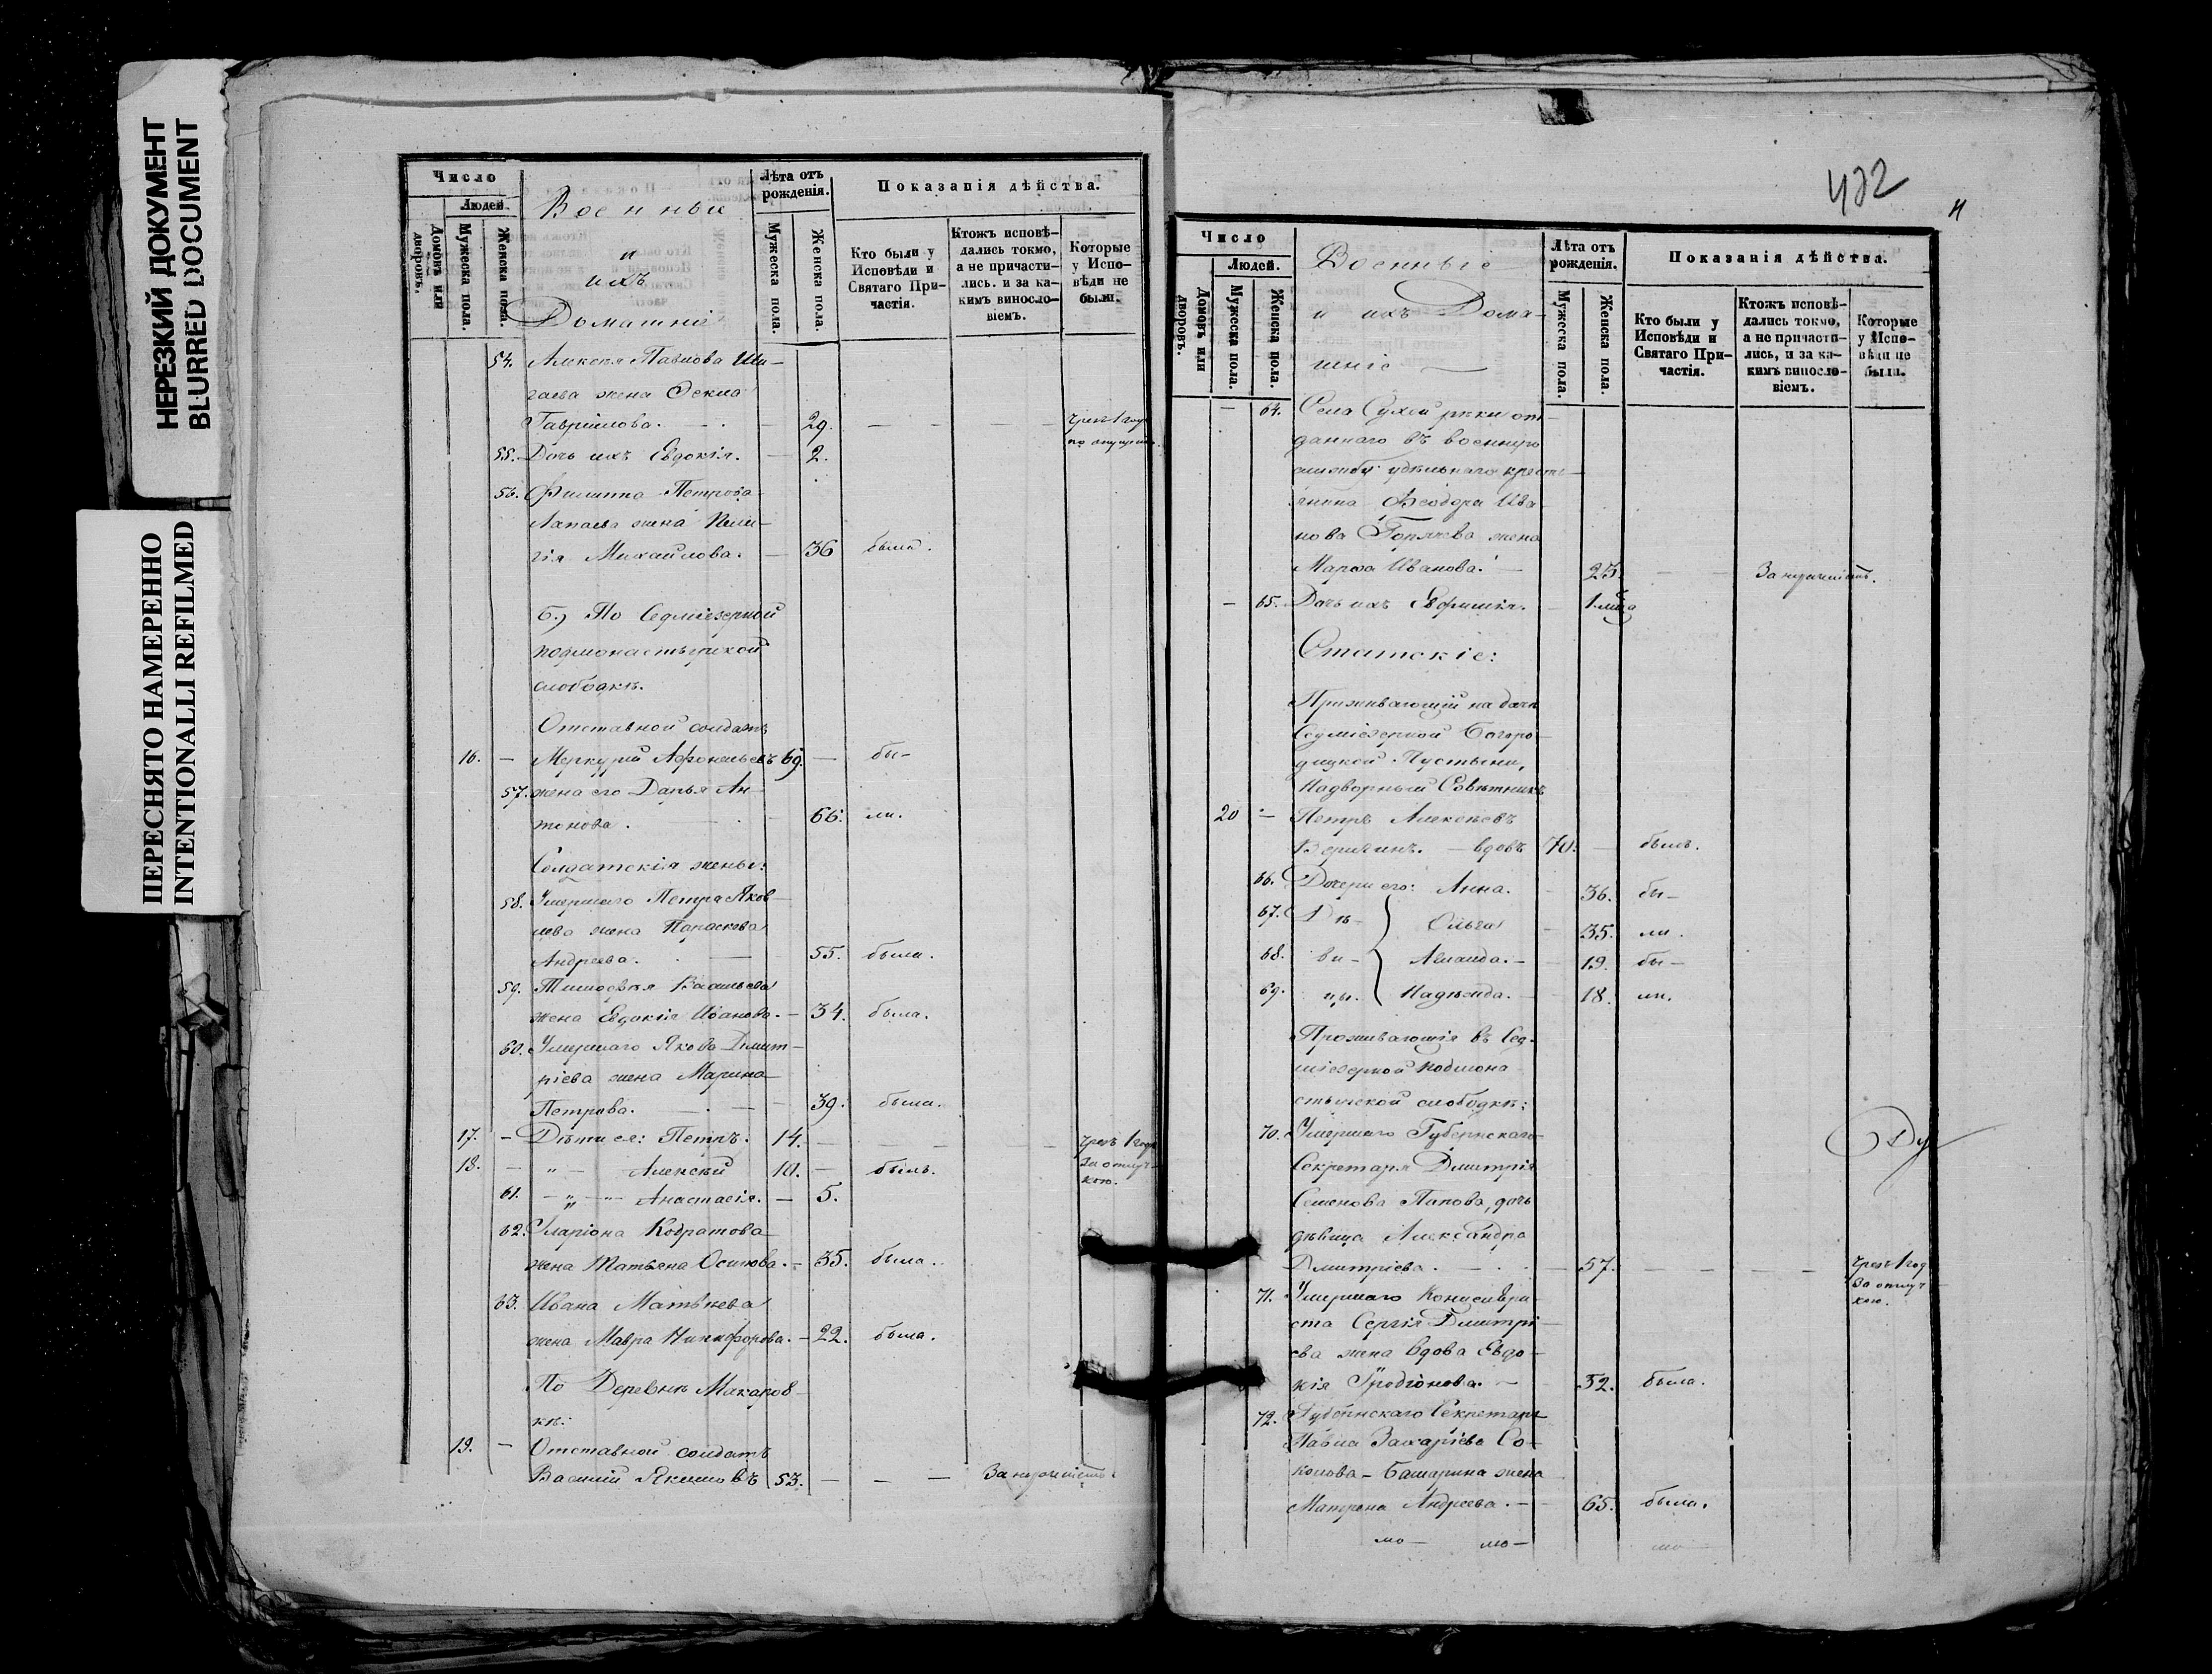 НЕРЕЗКИЙ ДОКУМЕНТ
BLURRED DOCUMENT
ПЕРЕСНЯТО НАМЕРЕННО
INTENTIONALLI REFILMED
Число
Людей
Домовъ или дворовъ.
Мужеска пола.
Женска пола.
Военные
и
ихъ
Домашніе
Лѣта отъ рожденія.
Мужеска пола.
Женска пола.
Показанія дѣйства.
Кто были у Исповѣди и Святаго Причастія.
Ктожъ исповѣдались токмо, а не причастились. и за какимъ винословіемъ.
Которые у Исповѣди не были.
54. Алексѣя Павлова Ши-
гаева жена Ѳекла
Гаврилова. 29. чрезъ 1 годъ
по опущен.
55. Дочь ихъ Евдокія. 2.
56. Филиппа Петрова
Лапаева жена Пела-
гія Михайлова. 36 была.
б.) По Седміезерной
подмонастырской
слободкѣ.
Отставной солдатъ
16. — Меркурій Афонасьевъ 69. — бы-
57. жена его Дарья Ан-
тонова. 66. ли.
Солдатскія жены:
58. Умершаго Петра Яков-
лева жена Параскева
Андреева. 55. была.
59. Тимоѳея Васильева
жена Евдокія Иванова. — 34. была.
60. Умершаго Якова Димит-
ріева жена Марина
Петрова. 39. была.
17. — Дѣти ея: Петръ. 14. — чрезъ 1 годъ
18. — „ — Алексѣй 10. — былъ. За отлуч-
кою.
61. — „ — Анастасія. — 5.
62. Иларіона Кодратова
жена Татьяна Осипова. — 35. была.
63. Ивана Матвѣева
жена Мавра Никифорова. — 22. была.
По Деревнѣ Макаров-
кѣ:
19. — Отставной солдатъ
Василій Якимовъ 53. — — —
432
Число
Людей.
Домовъ или дворовъ.
Мужеска пола.
Женска пола.
Военные
и ихъ Дома-
шніе
Лѣта отъ рожденія.
Мужеска пола
Женска пола
Показанія дѣйства.
Кто были у Исповѣди и Святаго Причастія.
Ктожъ исповѣдались токмо, а не причастились, и за какимъ винословіемъ.
Которые у Исповѣди не были.
— 64. Села Сухой рѣки от-
даннаго въ военную
службу удѣльнаго кресть-
янина Ѳеодора Ива-
нова жена
Марѳа Иванова. — 23.
— 65. Дочь ихъ Евфимія. 1.
Статскіе:
Проживающій на дачѣ
Седміезерной Богоро-
дицкой Пустыни,
Надворный Совѣтникъ
20 — Петръ Алексѣевъ
— вдовъ 70. — былъ.
66. Дочери его: Анна. 36. бы-
67. Дѣ- Ольга 35. ли.
68. ви- 19. бы-
69. цы. Надежда. 18. ли.
Проживающія въ Сед-
міезерной подмона-
стырской слободкѣ:
70. Умершаго Губернскаго
Секретаря Дмитрія
Семенова Попова, дочь
дѣвица Александра
Дмитріева. 57. — — — чрезъ 1 год
За отлуч
кою.
71. Умершаго Канцеляри-
ста Сергія Дмитрі-
ева жена вдова Евдо-
кія Иродіонова. — 52. была.
72. Губернскаго Секретаря
Павла Захаріева Со-
колова - Башарина жена
Матрена Андреева. — 65. была.